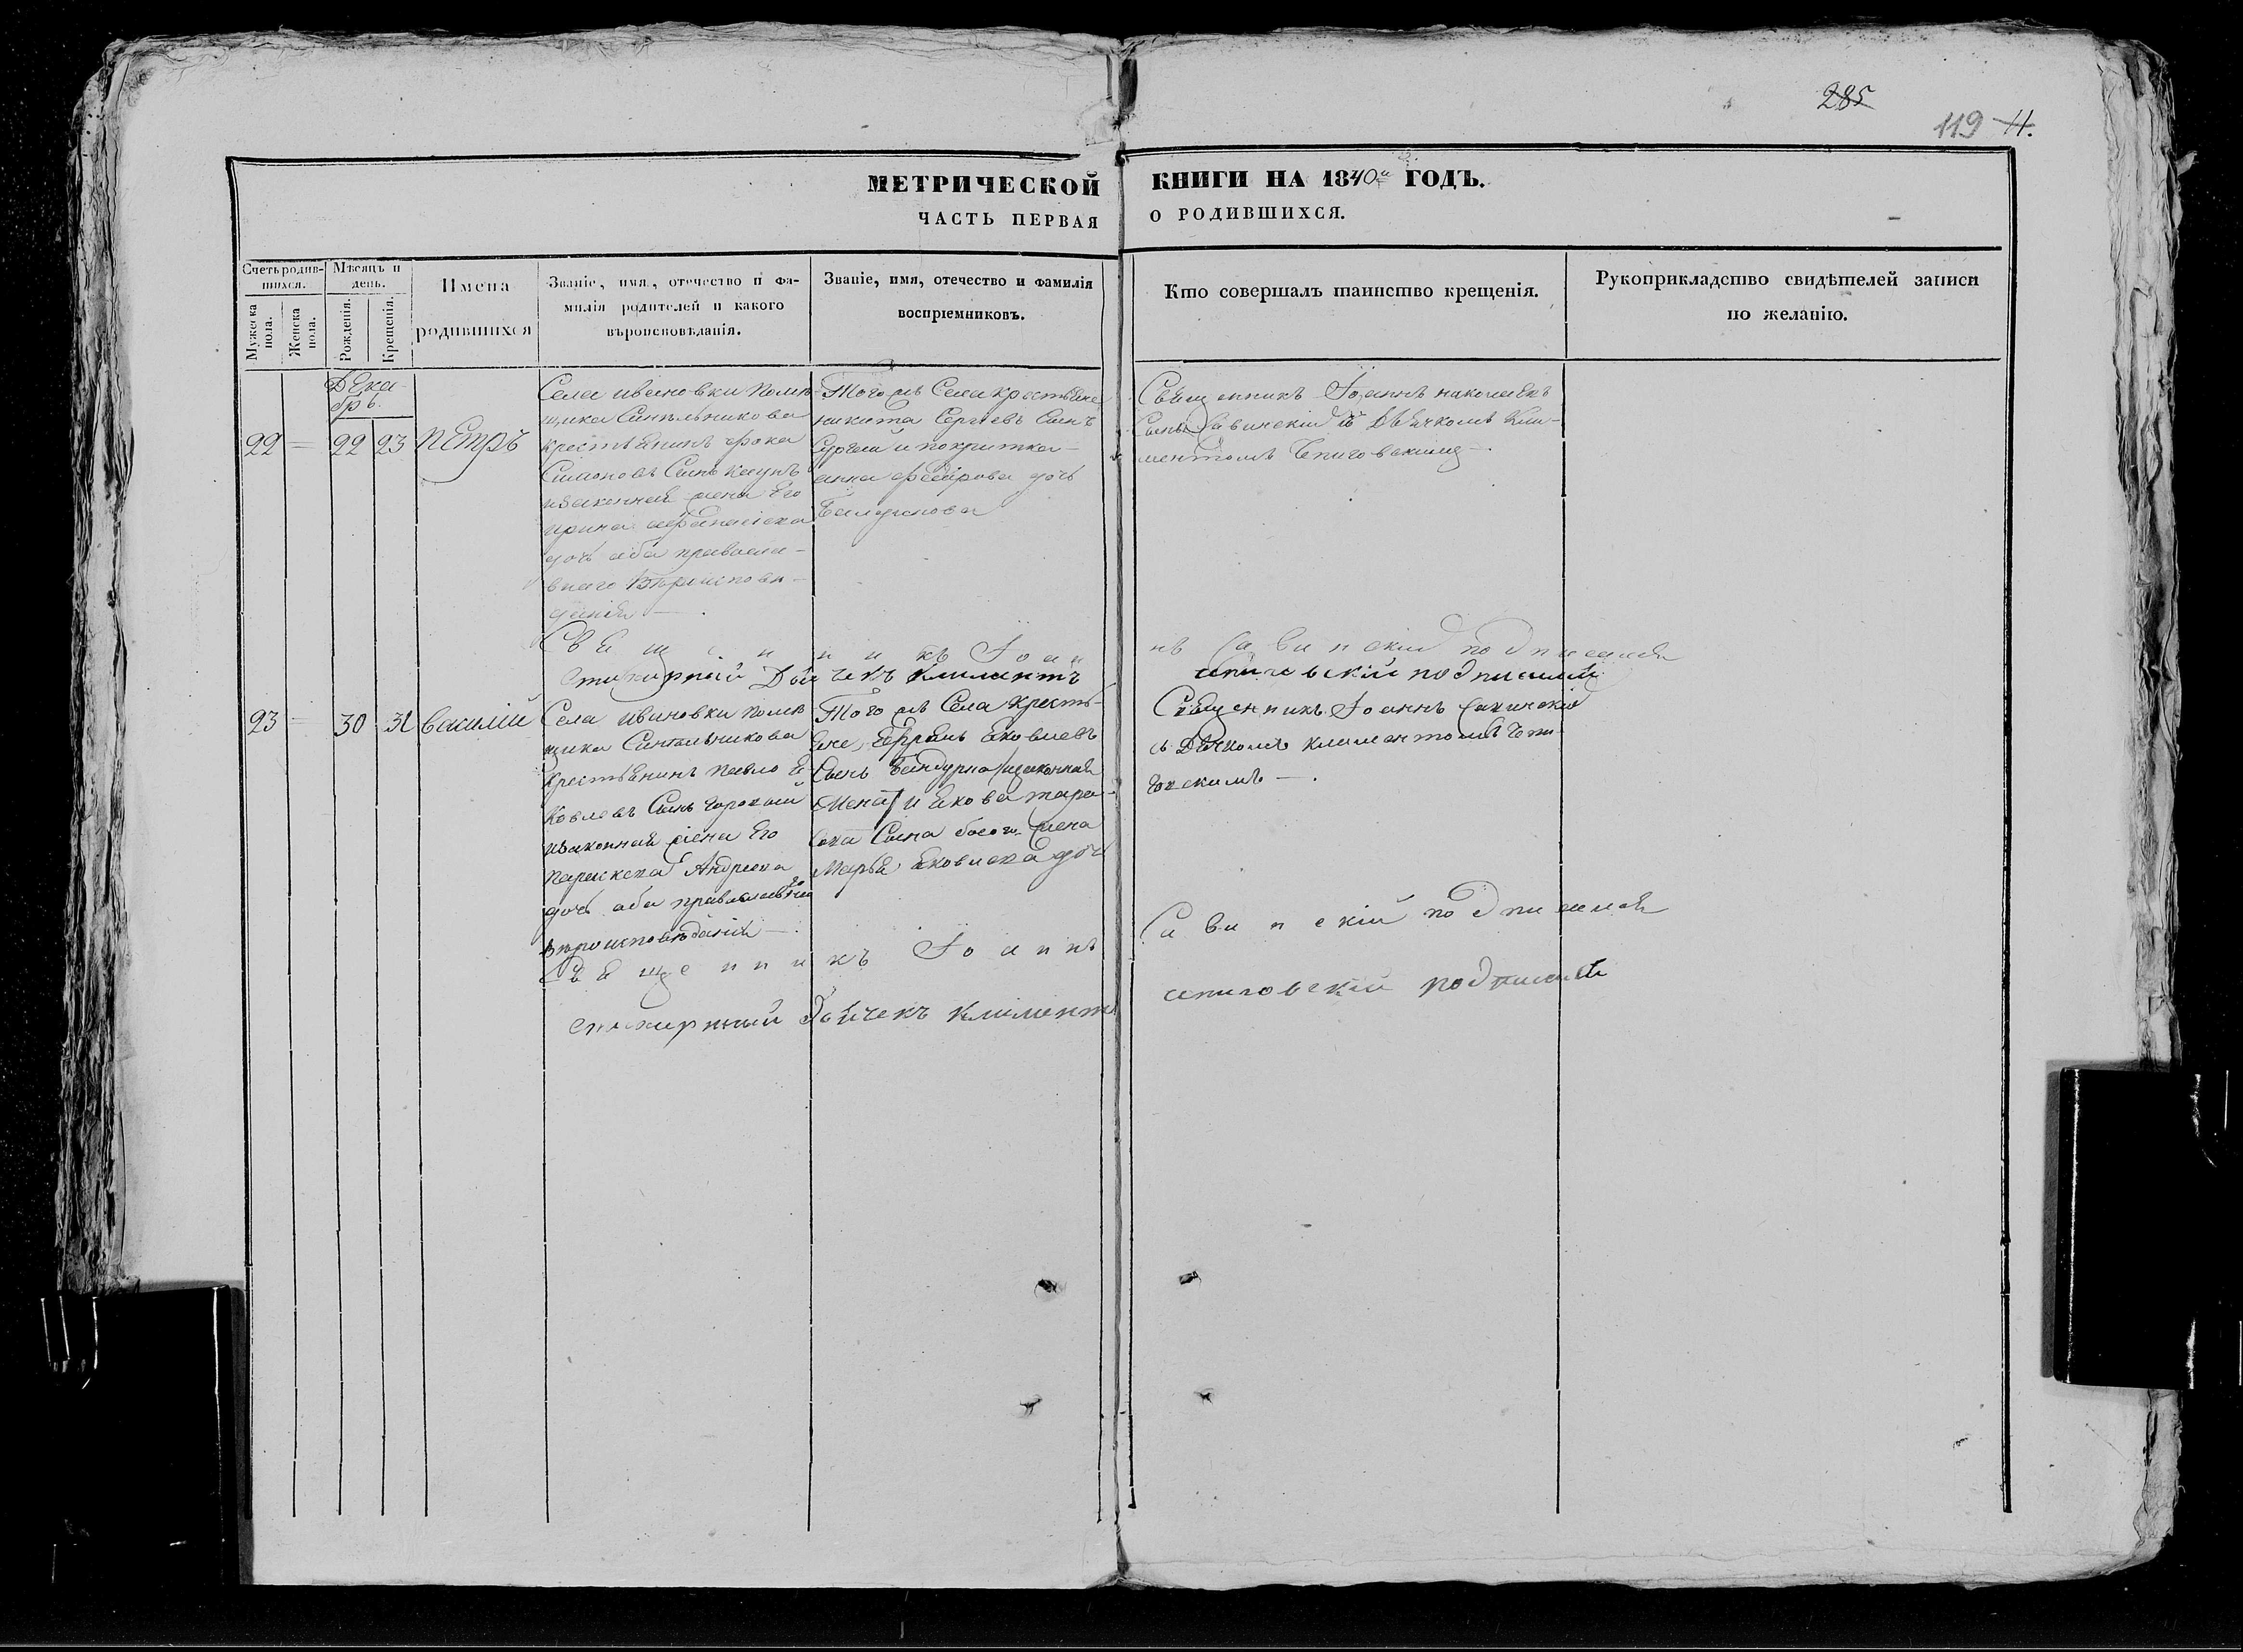 285
119 11.
МЕТРИЧЕСКОЙ КНИГИ НА 1840й ГОДЪ.
ЧАСТЬ ПЕРВАЯ О РОДИВШИХСЯ.
Счетъ родившихся.
Мужеска пола.
Женска пола.
Мѣсяцъ и день.
Рожденія.
Крещенія.
Имена
родившихся
Званіе, имя, отечество и фа-
милія родителей и какого
вѣроисповѣданія.
Званіе, имя, отечество и фамилія
воспріемниковъ.
Кто совершалъ таинство крещенія.
Рукоприкладство свидѣтелей записи
по желанію.
Дека-
брь.
22 = 22 23 Петръ
Села ивановки помѣ
щика Синельникова
крестьянинъ фока
Симоновъ Сынъ
изаконная жена Его
ирина
дочь оба православ-
внаго Вѣроисповѣ-
данія —
Того жъ Села крестьяне
никита Сергѣевъ Сынъ
анна федорова дочь
Священникъ Іоаннъ николаевъ
Сынъ Савинскій съ Дьячкомъ Кли-
ментомъ
Священникъ Іоаннъ Савинскій подписался
стихарный Дьячекъ Климентъ подписался
23 = 30 31 василій
Села ивановки помѣ
щика Синельникова
крестьянинъ павло Я-
ковлевъ Сынъ
изаконная жена Его
параскева Андреева
дочь оба православнаго
вѣроисповѣданія —.
Того жъ Села кресть-
яне Ефремъ Яковлевъ
Сынъ Бандурка изаконная
жена и Якова тара-
сова Сына жена
марья Яковлева дочь
Священникъ Іоаннъ Савинскій
съ Дьячкомъ климентомъ
Священникъ Іоаннъ Савинскій подписался
стихарный Дьячекъ Климентъ подписался